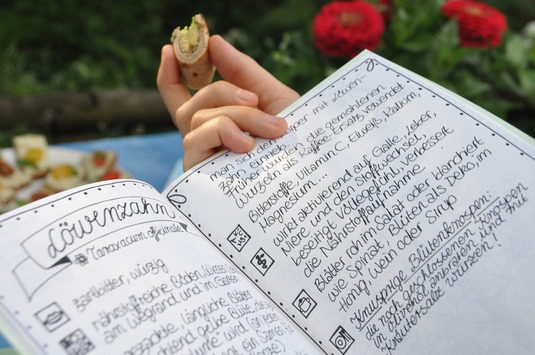 Löwenzahn
Taraxacum officinale
zartbitter, würzig
nährstoffreiche Böden, Wiesen
am Wegrand und im Garten
gezackte, längliche Blätter
gelbe Blüte
man sich den
aber mit Löwen-
zahn einheizen, die gemahlenen
Früher wurden
Wurzeln als Kaffee-Ersatz verwendet.
Bitterstoffe, Vitamin C, Eiweiß, Kalium,
Magnesium...
wirkt aktivierend auf Galle, Leber,
Niere und den Stoffwechsel,
beseitigt Völlegefühl, verbessert
die Nährstoffaufnahme...
Blätter rohm Salat oder blanchiert
wie Spinat, Blüten als Deko, im
Honig, Wein oder Sirup
Knusprige Blütenknospen:
die noch geschlossenen Knospen
in anbraten und mit
Kräutersalz würzen!